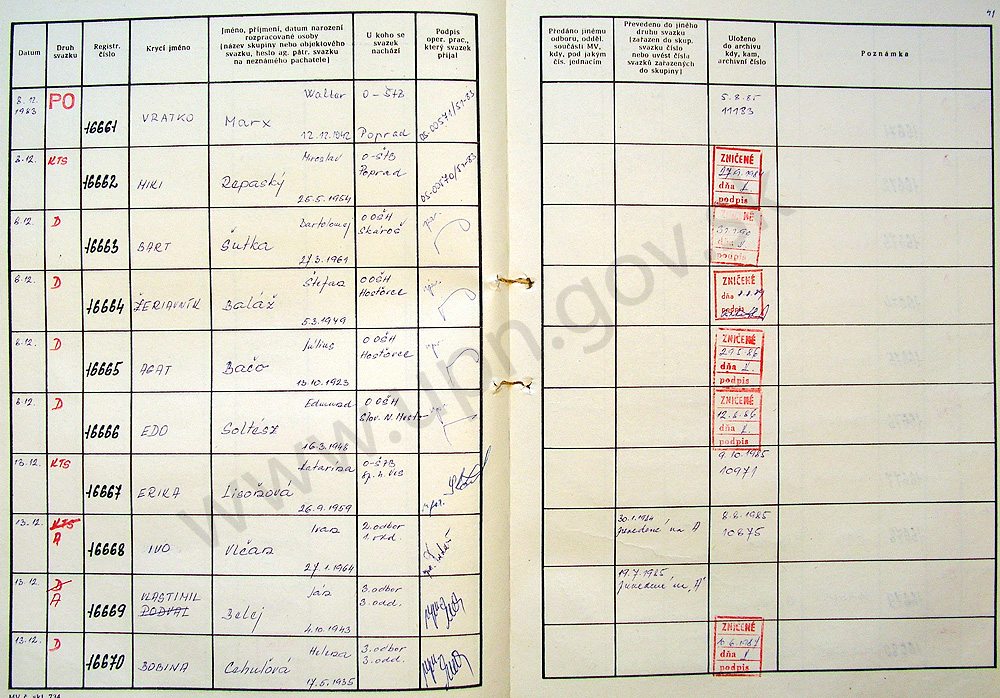 71
Datum
Druh svazku
Registr. číslo
Krycí jméno
Jméno, příjmení, datum narození
rozpracované osoby
(název skupiny nebo objektového
svazku, heslo ag. pátr. svazku
na neznámého pachatele)
U koho se
svazek
nachází
Podpis
oper. prac.,
který svazek
přijal
Předáno jinému
odboru, odděl.
součásti MV,
kdy, pod jakým
čís. jednacím
Převedeno do jiného
druhu svazku
(zařazen do skup.
svazku číslo
nebo uvést čísla
svazků zařazených
do skupiny)
Uloženo
do archivu
kdy, kam,
archivní číslo
Poznámka
8.12. 1983 PO 16661 VRATKO Walter Marx 12.12.1942 O-ŠTB Poprad OS-00571/51-83 5.8.85 11183
8.12. KTS 16662 MIKI Miroslav Repaský 25.5.1954 O-ŠTB Poprad OS-00570/51-83 ZNIČENÉ dňa podpis
8.12. D 16663 BART Bartolomej Šutka 27.3.1961 OOŠH Skároš ZNIČENÉ dňa podpis
8.12. D 16664 ŽERIAVNIK Štefan Baláž 5.3.1949 OOŠH Hosťovce ZNIČENÉ dňa podpis
8.12. D 16665 AGAT Július Bačo 13.10.1923 OOŠH Hosťovce ZNIČENÉ 29.5.86 dňa podpis
8.12. D 16666 EDO Edmund Soltész 16.3.1948 OOŠH Slov. N. Mesto ZNIČENÉ 12.6.86 dňa podpis
13.12. KTS 16667 ERIKA Katarína 26.9.1959 O-ŠTB Sp. N. Ves 9.10.1985 10971
13.12. KTS A 16668 IVO Ivan Vlčan 27.1.1964 2.odbor 1.odd. 30.1.1984 na A 8.8.1985 10675
13.12. D A 16669 VLASTIMIL PODVAL Ján Belej 4.10.1943 3.odbor 3.odd. 19.7.1985 na "A"
13.12. D 16670 BOBINA Helena Cehuľová 17.5.1935 3.odbor 3.odd. ZNIČENÉ dňa podpis
www.upn.gov.sk